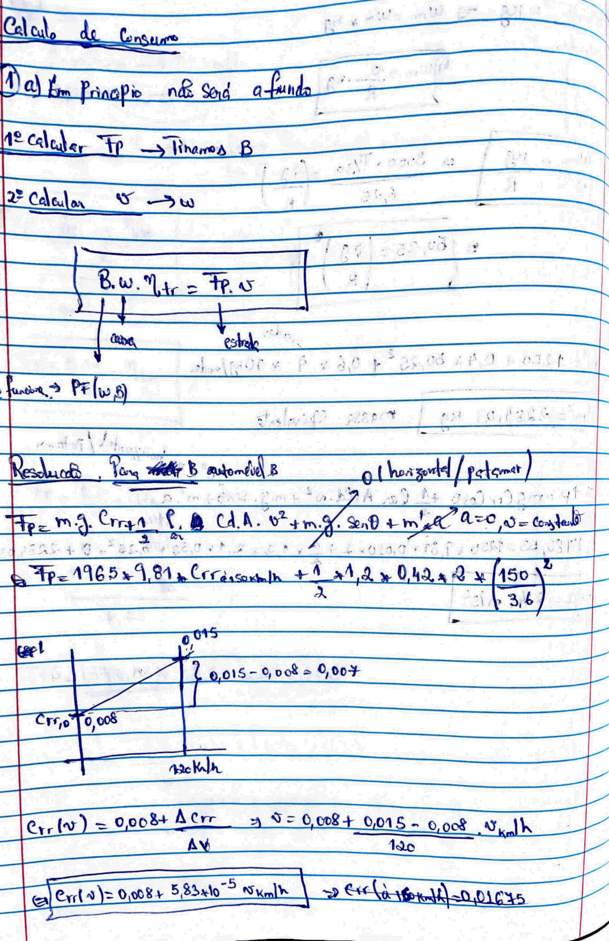 Calculo de Consumo
1) a) Em Principio não será a fundo
1º Calcular Fp → Tiramos B
2º Calcular v → w
B.w.ηtr = Fp.v
caixa
estrada
→ PF(w,B)
Resolução. Para B automóvel B
0 (horizontal/patamar)
Fp = m.g. Crr + 1/2 ρar Cd.A. v² + m.g. senθ + m'a a=0, v=constante
Fp = 1965*9,81* Crr à 150km/h + 1/2 *1,2*0,42*2*(150/3,6)²
0,015
0,015-0,008=0,007
Crr,0 0,008
120 Km/h
Crr(v) = 0,008 + ΔCrr/ΔV ⇒ v = 0,008 + (0,015-0,008)/120 . vKm/h
⇔ Crr(v) = 0,008 + 5,83*10⁻⁵ vKm/h ⇒ Crr(à 150km/h) = 0,01675